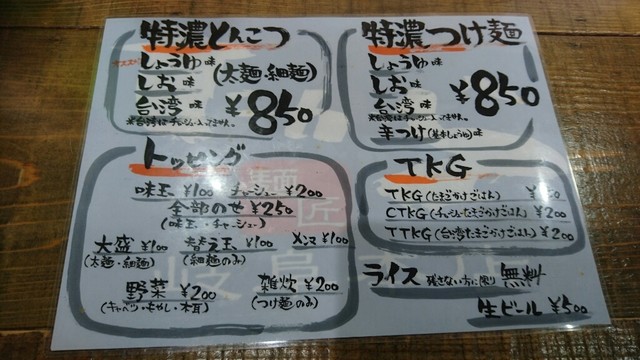 特濃とんこつ
オススメ
しょうゆ味
しお味
台湾味
(太麺・細麺)
¥850
※台湾はチャーシュー入ってません。
特濃つけ麺
しょうゆ味
しお味
台湾味
¥850
※台湾はチャーシュー入ってません。
辛つけ(基本しょうゆ)味
トッピング
味玉 ¥100 チャーシュー ¥200
全部のせ ¥250
(味玉・チャーシュー)
大盛 ¥100 替え玉 ¥100 メンマ ¥100
(太麺・細麺) (細麺のみ)
野菜 ¥200 雑炊 ¥200
(キャベツ・もやし・木耳) (つけ麺のみ)
TKG
TKG(たまごかけごはん)
CTKG(チャーシューたまごかけごはん)
TTKG(台湾たまごかけごはん) ¥200
ライス 残さない方に限り 無料
生ビール ¥500
麺匠